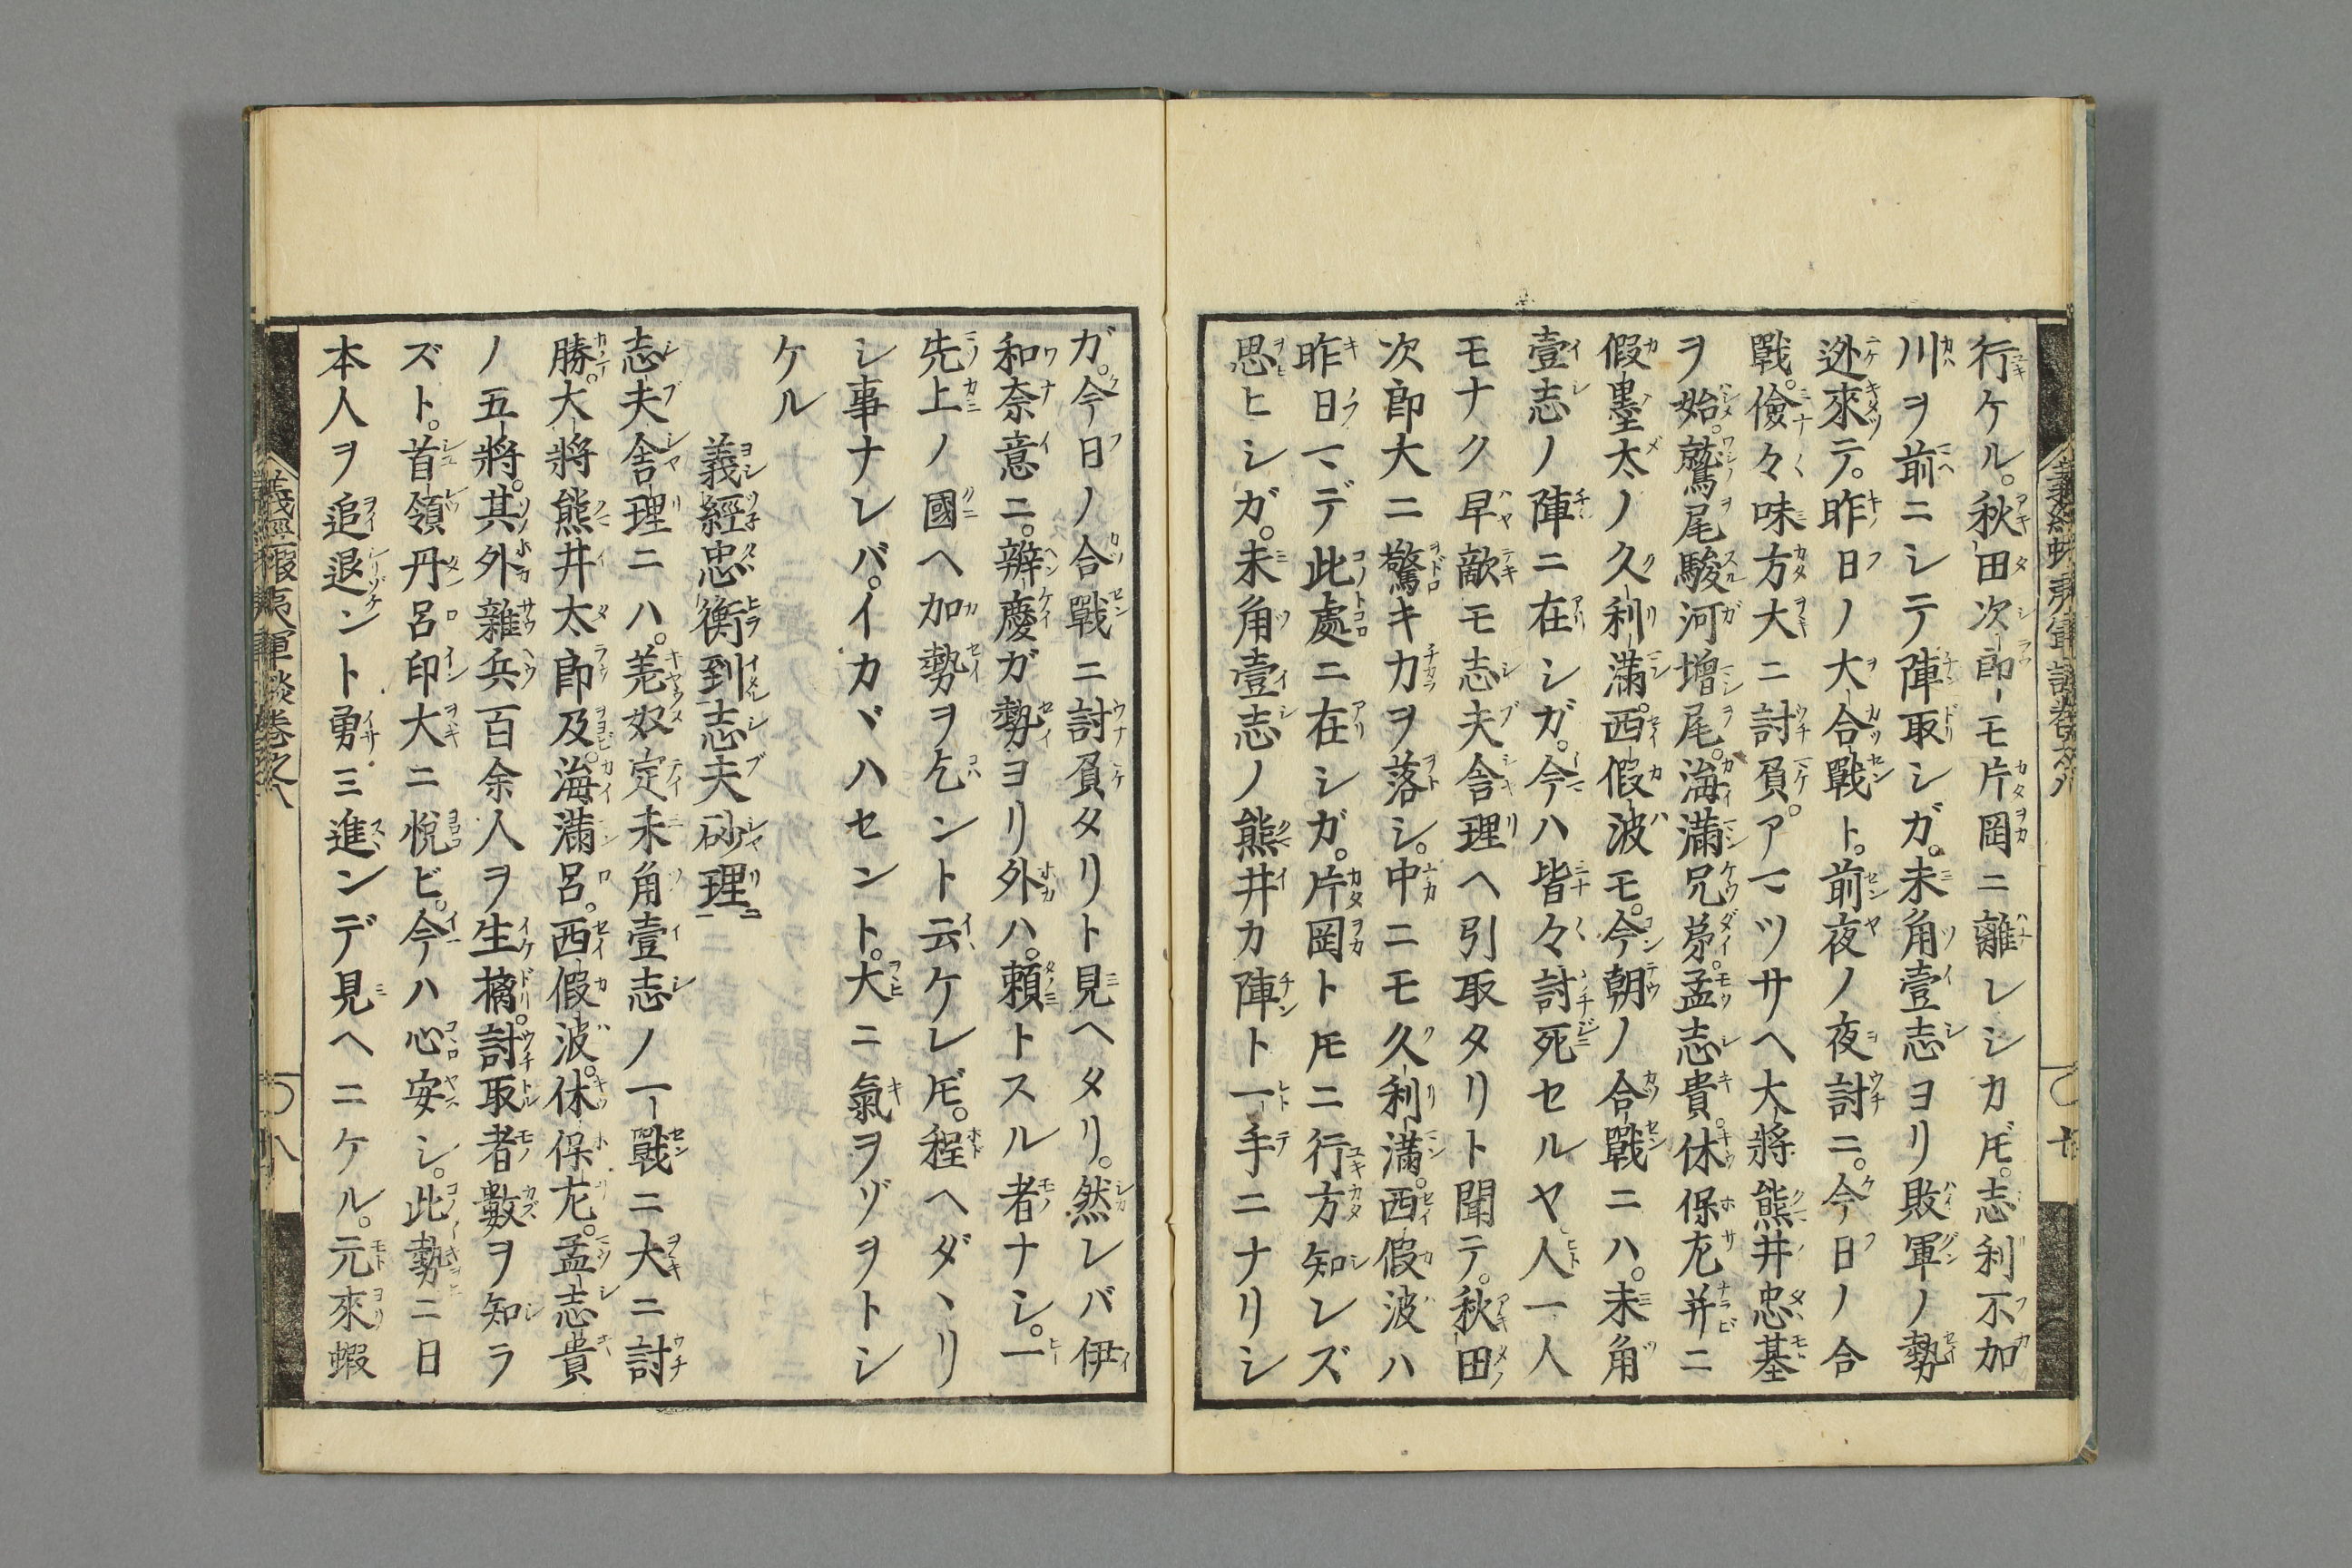 行ケル。秋田次郎モ片岡ニ離レシカ𪜈。志利不加
川ヲ前ニシテ陣取シガ。未角壹志ヨリ敗軍ノ勢
迯來テ。昨日ノ大合戰ト。前夜ノ夜討ニ。今日ノ合
戰。儉々味方大ニ討負。アマツサヘ大將熊井忠基
ヲ始。鷲尾駿河増尾。海滿兄弟。孟志貴。休保尨并ニ
假墨太ノ久利滿。西假波モ。今朝ノ合戰ニハ。未角
壹志ノ陣ニ在シガ。今ハ皆々討死セルヤ人一人
モナク早敵モ志夫舎理ヘ引取タリト聞テ。秋田
次郎大ニ驚キ力ヲ落シ。中ニモ久利滿。西假波ハ
昨日マデ此處ニ在シガ。片岡ト𪜈ニ行方知レズ
思ヒシガ。未角壹志ノ熊井カ陣ト一手ニナリシ
ガ。今日ノ合戰ニ討負タリト見ヘタリ。然レバ伊
和奈意ニ。辨慶ガ勢ヨリ外ハ。頼トスル者ナシ。一
先上ノ國ヘ加勢ヲ乞ント云ケレ𪜈。程ヘダヽリ
シ事ナレバ。イカヾハセント。大ニ氣ヲヅヲトシ
ケル
義經忠衡到志夫砂理ニ
志夫舎理ニハ。羗奴定未角壹志ノ一戰ニ大ニ討
勝。大將熊井太郎及。海滿呂。西假波。休保尨。孟志貴
ノ五將。其外雜兵百余人ヲ生擒。討取者數ヲ知ラ
ズト。首領丹呂印大ニ悅ビ。今ハ心安シ。此勢ニ日
本人ヲ追退ント勇ミ進ンデ見ヘニケル。元來蝦
義經蝦夷軍談卷之八
八